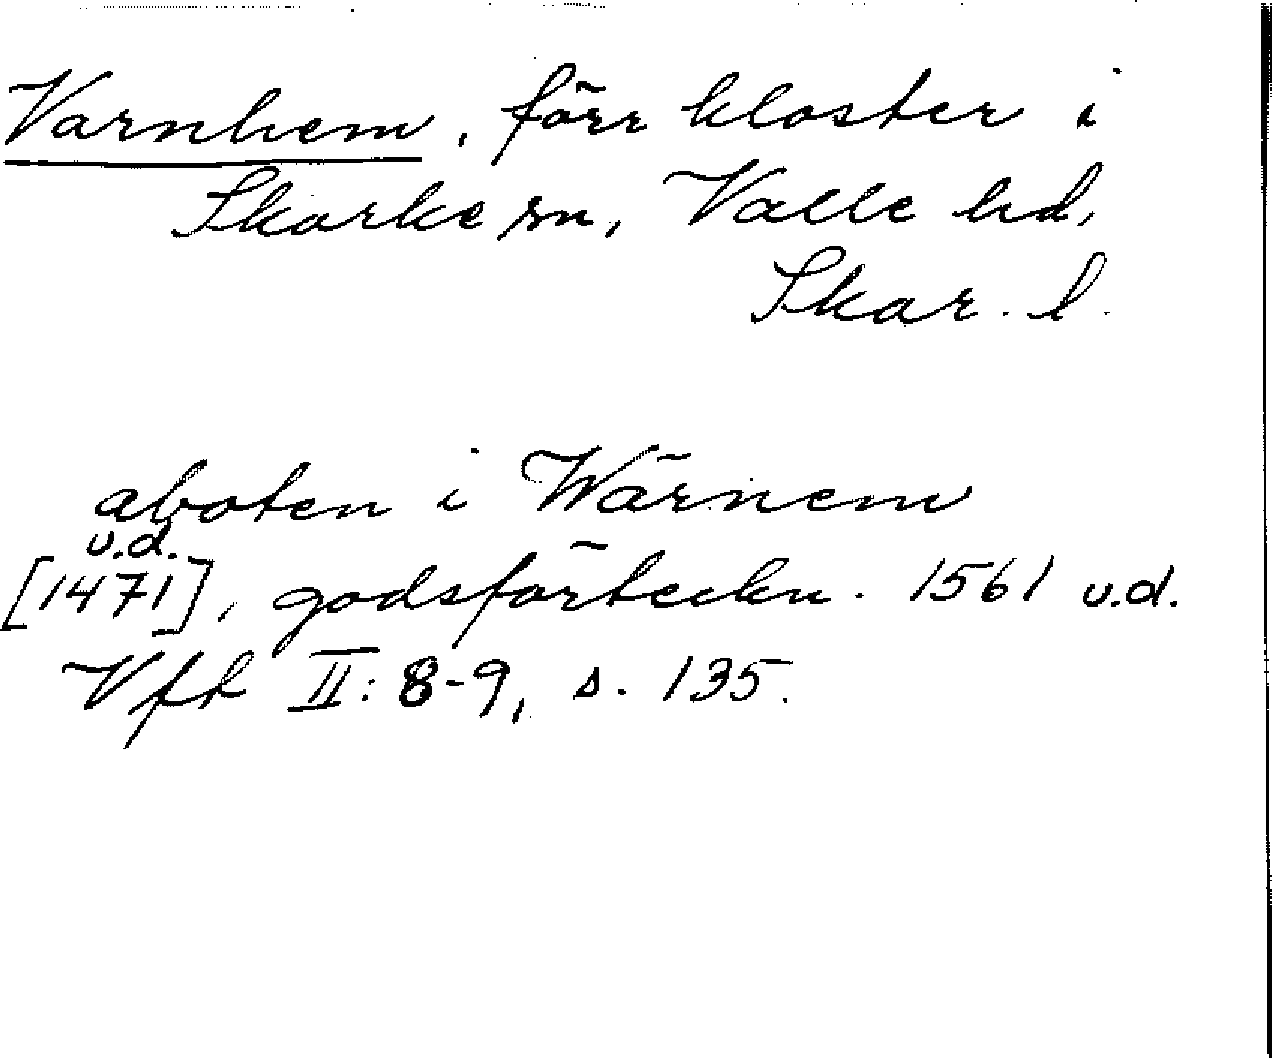 Varnhem, förr kloster i
Skarke sn, Valle hd,
Skar. l.
aboten i Wärnem
u.d.
[1471], godsförteckn. 1561 u.d.
Vfk II: 8-9, s. 135.